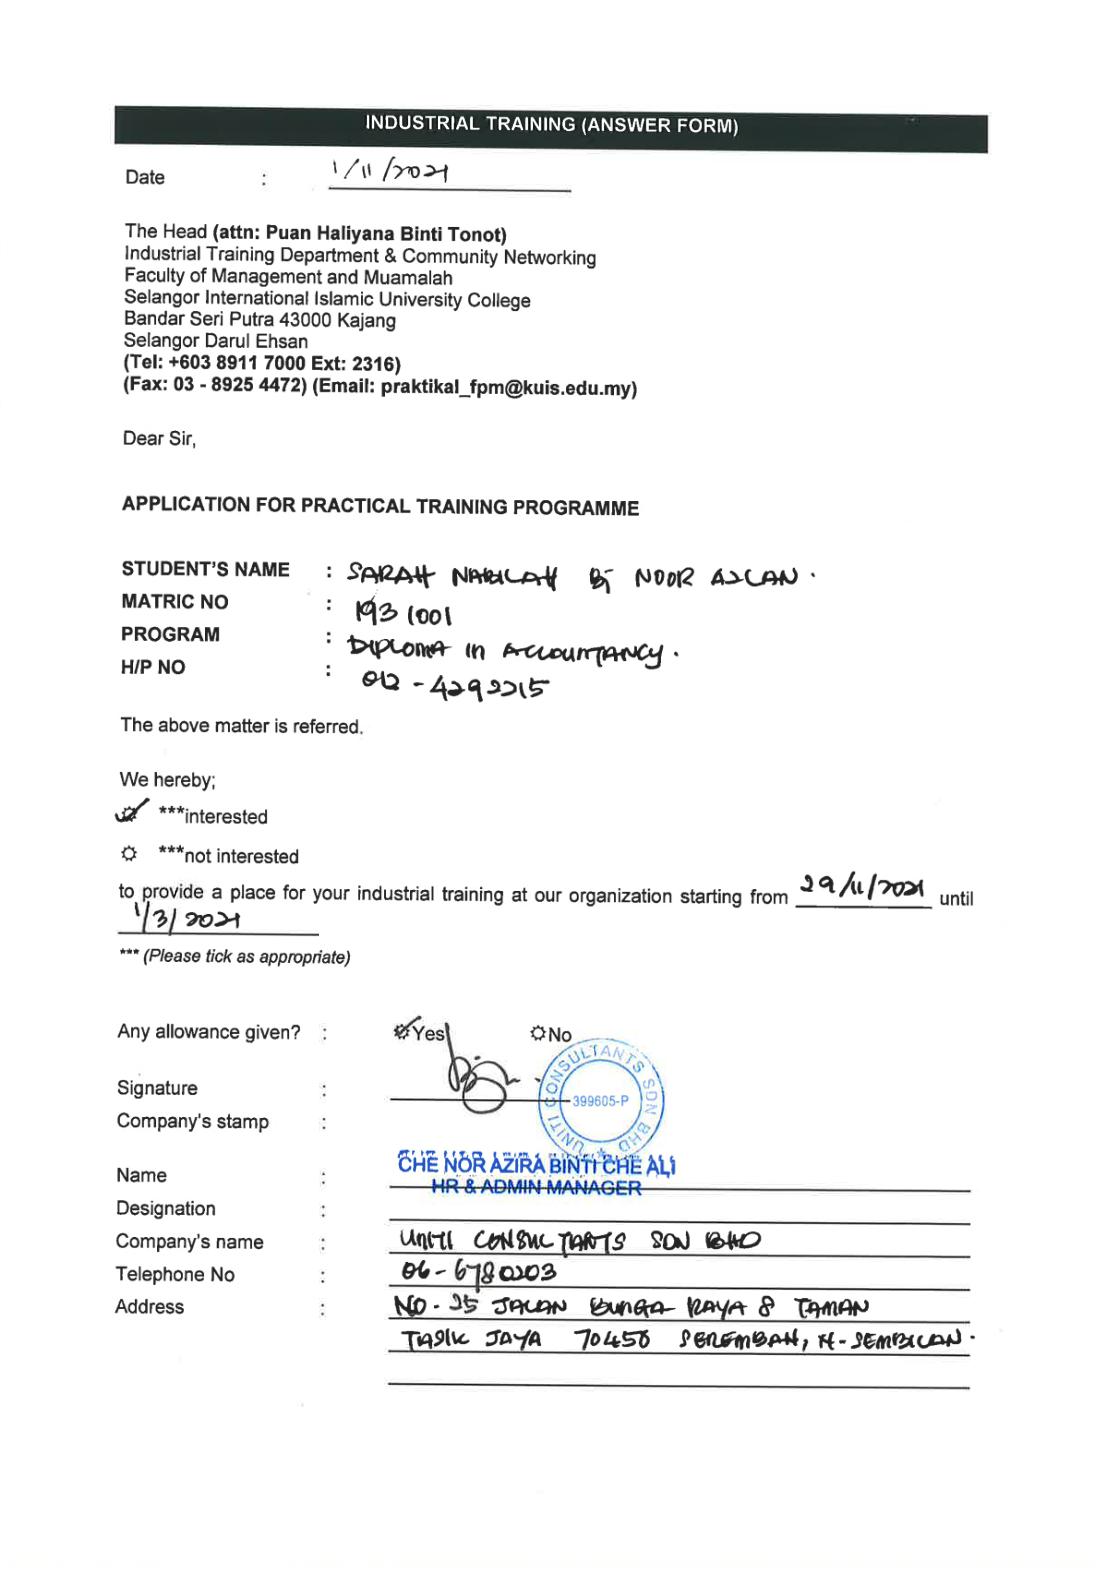 INDUSTRIAL TRAINING (ANSWER FORM)
Date : 1/11/2021
The Head (attn: Puan Haliyana Binti Tonot)
Industrial Training Department & Community Networking
Faculty of Management and Muamalah
Selangor International Islamic University College
Bandar Seri Putra 43000 Kajang
Selangor Darul Ehsan
(Tel: +603 8911 7000 Ext: 2316)
(Fax: 03 - 8925 4472) (Email: praktikal_fpm@kuis.edu.my)
Dear Sir,
APPLICATION FOR PRACTICAL TRAINING PROGRAMME
STUDENT'S NAME : SARAH NABILAH BT NOOR AZLAN.
MATRIC NO : 1931001
PROGRAM : DIPLOMA in ACCOUNTANCY.
H/P NO : 012-4292215
The above matter is referred.
We hereby;
***interested
***not interested
to provide a place for your industrial training at our organization starting from 29/11/2021 until
1/3/2021
*** (Please tick as appropriate)
Any allowance given? : Yes No
Signature :
Company's stamp :
UNITI CONSULTANTS SDN BHD
399605-P
CHE NOR AZIRA BINTI CHE ALI
Name :
HR & ADMIN MANAGER
Designation :
Company's name : UNITI CONSULTANTS SDN BHD
Telephone No : 06-6780203
Address : NO. 25 JALAN BUNGA RAYA 8 TAMAN
TASIK JAYA 70450 SEREMBAN, N-SEMBILAN.